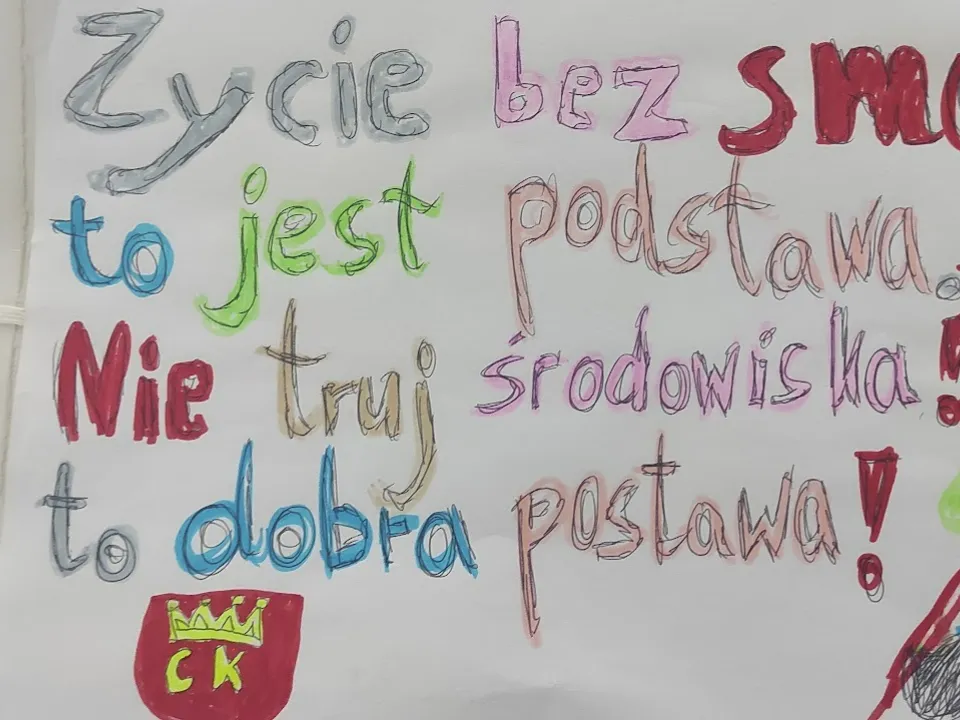 Zycie bez
to jest podstawa.
Nie truj środowiska!
to dobra postawa!
CK